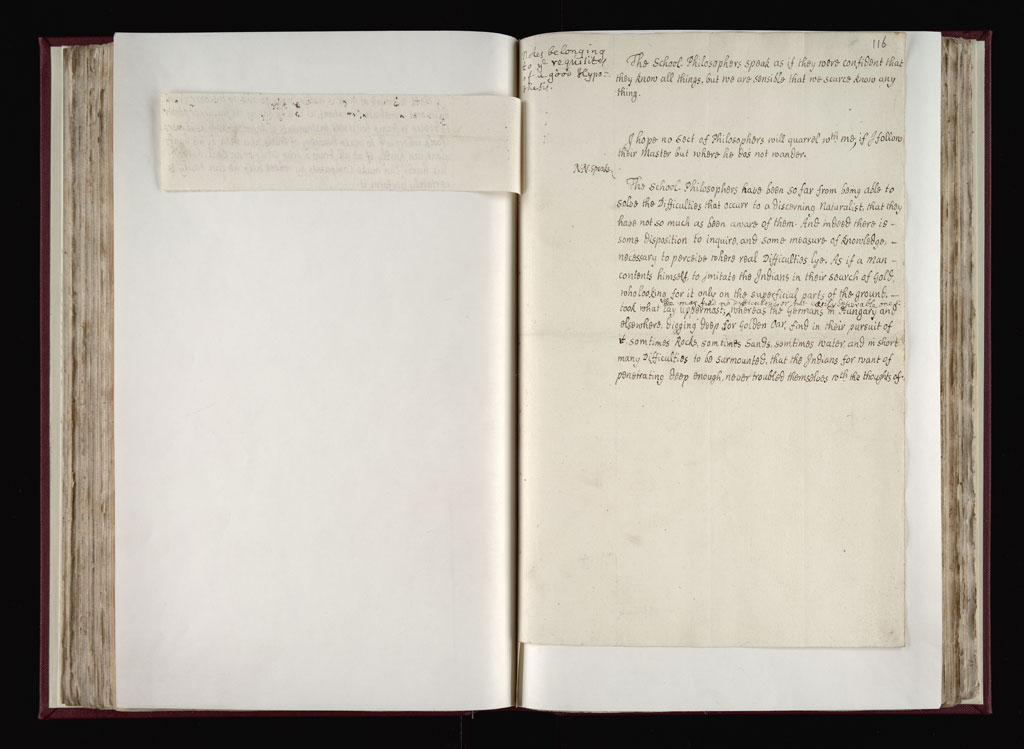 116
Notes belonging
to ye requisites
of a good Hypo-
thesis.
The School Philosophers speak as if they were confident that
they know all things, but we are sensible that we scarce know any
thing.
I hope no Sect of Philosophers will quarrel wth me, if I follow
their Master but where he dos not wander.
NN. speaks
The School Philosophers have been so far from being able to
solve the Difficulties that occurr to a discerning Naturalist, that they
have not so much as been aware of them. And indeed there is -
some disposition to inquire, and some measure of knowledge, -
necessary to perceive where real Difficulties lye. As if a man -
contents himself to imitate the Indians in their search of Gold,
who looking for it only on the superficial parts of the ground, -
took what lay uppermost; he may find no difficultys or but easily
whereas the Germans in Hungary and
elsewhere, digging deep for Golden Oar, find in their pursuit of
it, somtimes Rocks, somtimes Sands, somtimes water, and in short
many Difficulties to be surmounted, that the Indians for want of
penetrating deep enough, never troubled themselves wth the thoughts of.